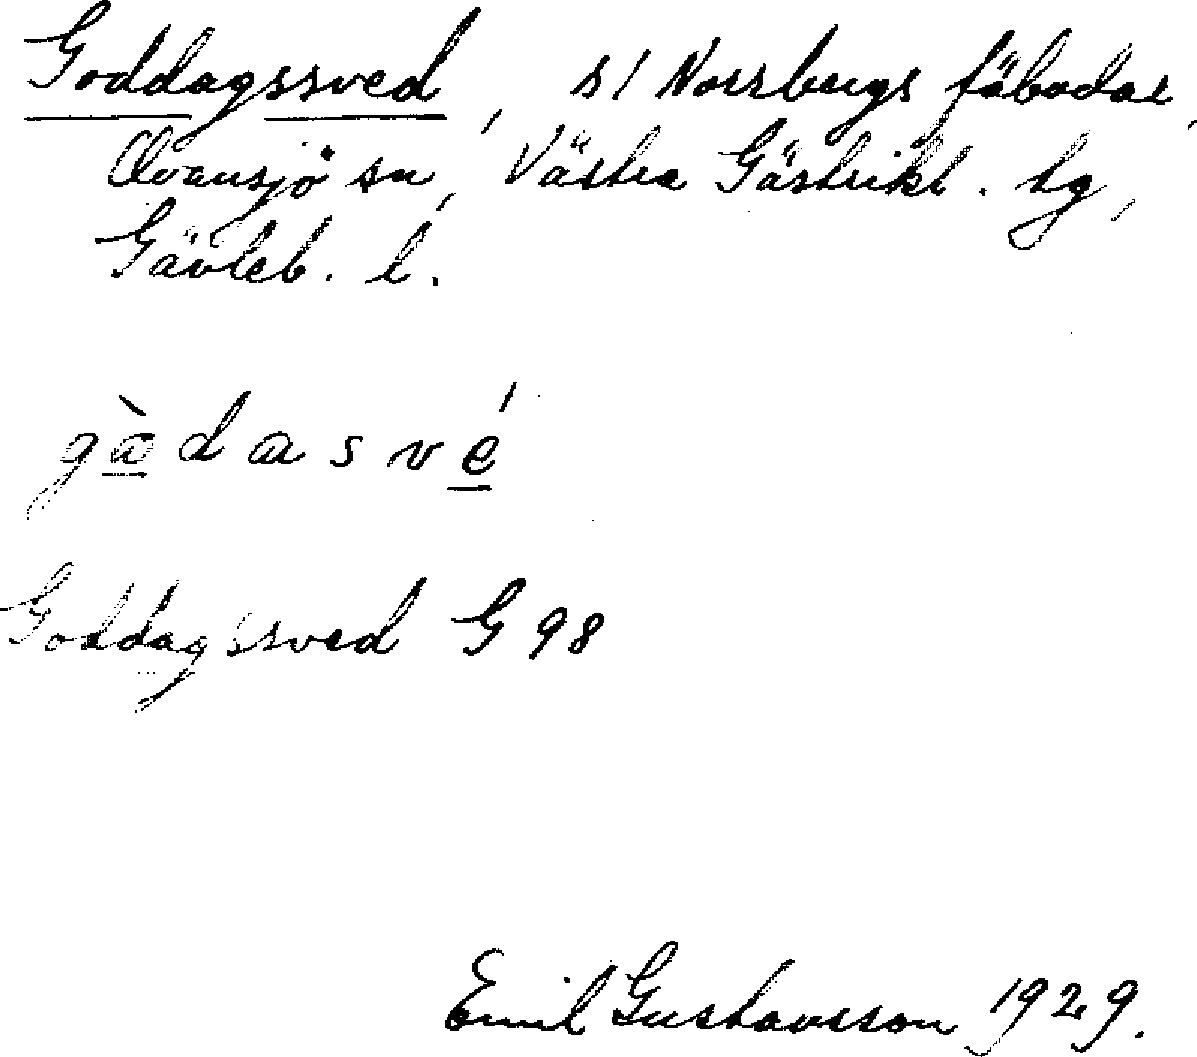 Goddagssved, s/ Norrbergs fäbodar,
Ovansjö sn, Västra Gästrikl. tg,
Gävleb. l.
gàdasvé
Goddagssved G 98
Emil Gustavsson 1929.